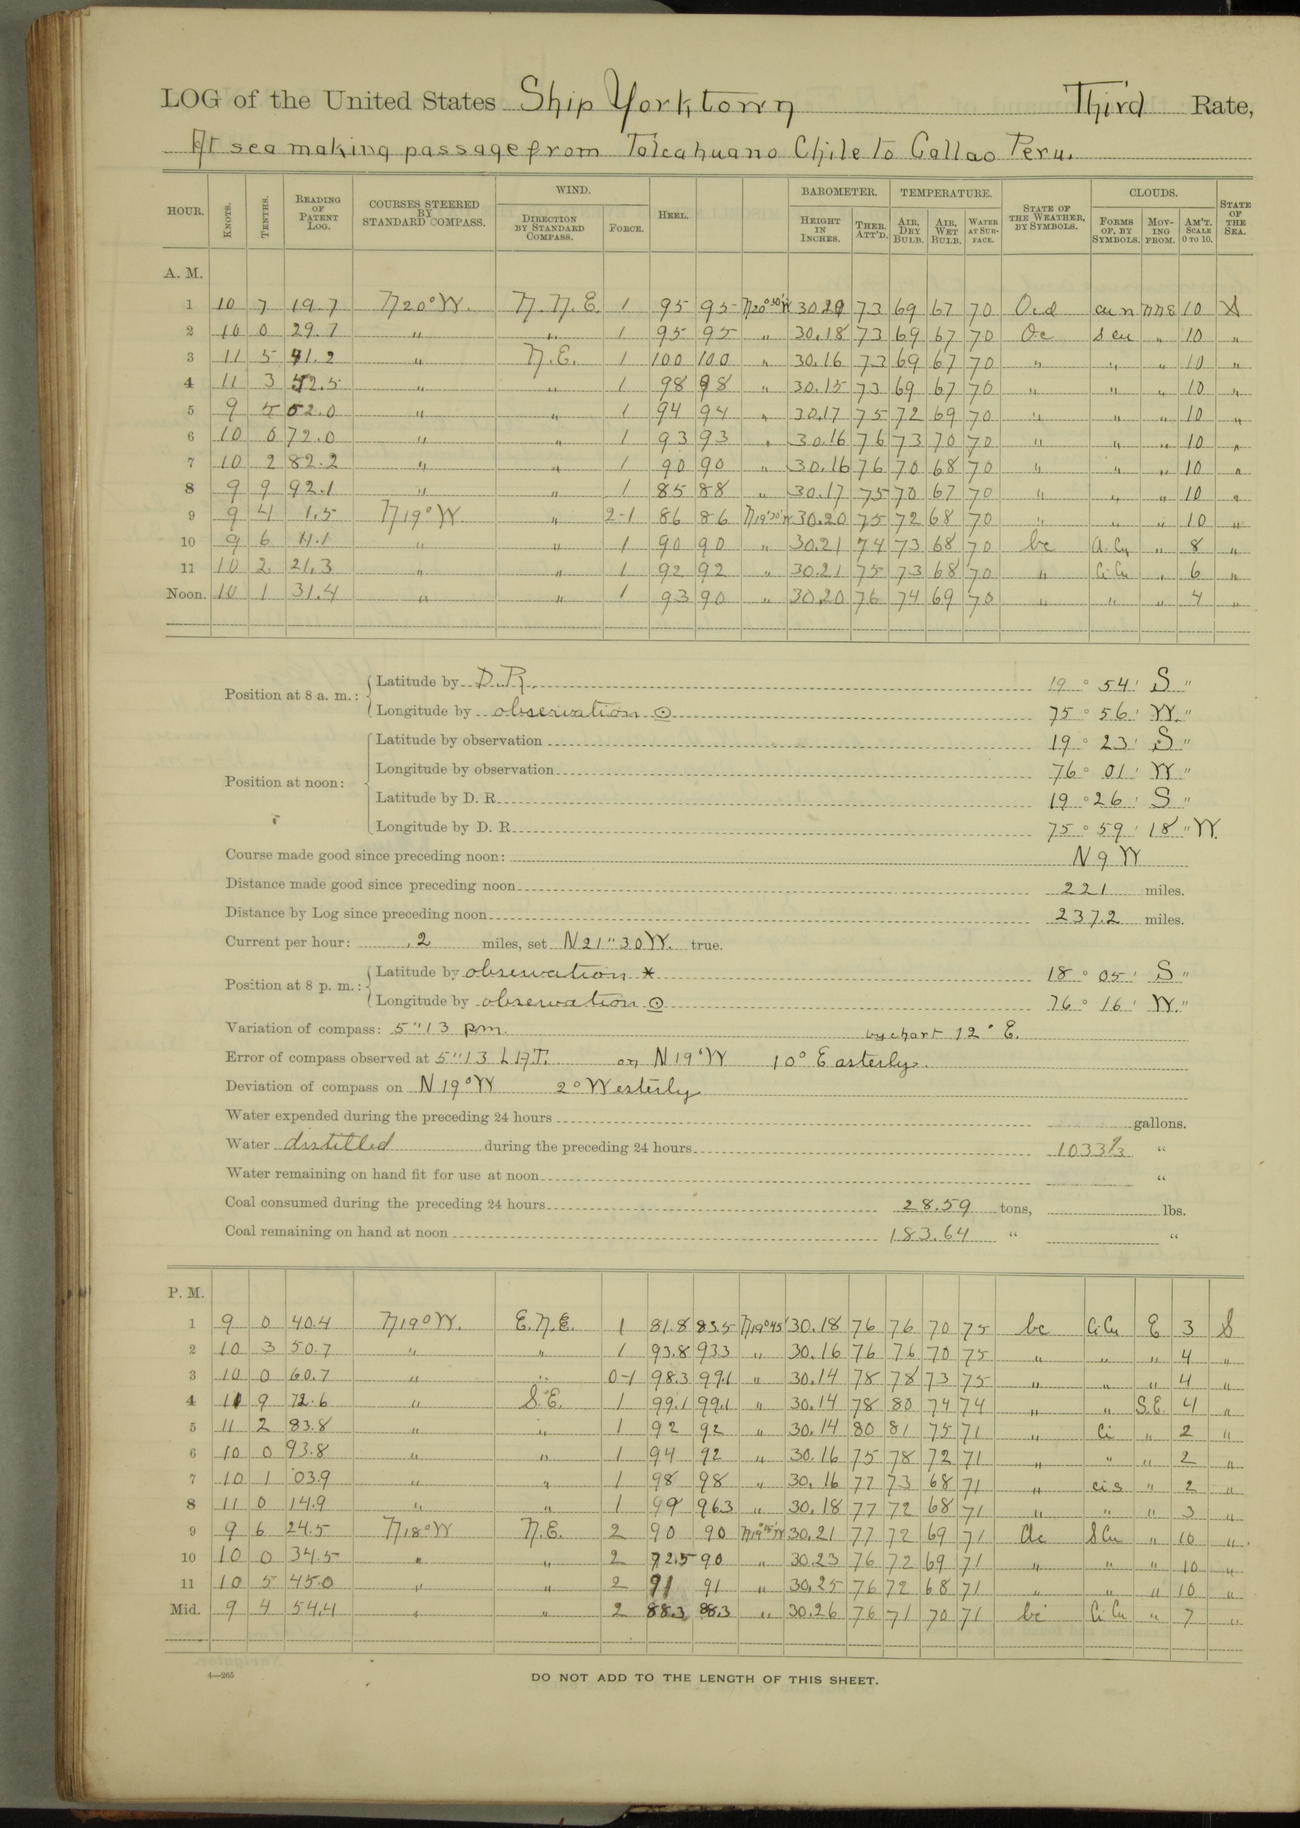 LOG of the United States Ship Yorktown Third Rate,
At sea making passage from Talcahuano Chile to Callao Peru.
HOUR. KNOTS. TENTHS. READING OF PATENT LOG. COURSES STEERED BY STANDARD COMPASS. WIND. DIRECTION BY STANDARD COMPASS. FORCE. HEEL. BAROMETER. HEIGHT IN INCHES. THER. ATT'D. TEMPERATURE. AIR, DRY BULB. AIR, WET BULB. WATER AT SURFACE. STATE OF THE WEATHER, BY SYMBOLS. CLOUDS. FORMS OF, BY SYMBOLS. MOVING FROM. AM'T. SCALE 0 TO 10. STATE OF THE SEA.
A. M.
1 10 7 19.7 N20°W. N.N.E. 1 95 95 N20°30'W 30.20 73 69 67 70 Ocd cu n NNE 10 S
2 10 0 29.7 " " 1 95 95 " 30.18 73 69 67 70 Oc S cu " 10 "
3 11 5 41.2 " N.E. 1 100 100 " 30.16 73 69 67 70 " " " 10 "
4 11 3 52.5 " " 1 98 98 " 30.15 73 69 67 70 " " " 10 "
5 9 5 62.0 " " 1 94 94 " 30.17 75 72 69 70 " " " 10 "
6 10 0 72.0 " " 1 93 93 " 30.16 76 73 70 70 " " " 10 "
7 10 2 82.2 " " 1 90 90 " 30.16 76 70 68 70 " " " 10 "
8 9 9 92.1 " " 1 85 88 " 30.17 75 70 67 70 " " " 10 "
9 9 4 1.5 N19°W " 2-1 86 86 N19°30'W 30.20 75 72 68 70 " " " 10 "
10 9 6 11.1 " " 1 90 90 " 30.21 74 73 68 70 bc A.Cu " 8 "
11 10 2 21.3 " " 1 92 92 " 30.21 75 73 68 70 " Ci Cu " 6 "
Noon. 10 1 31.4 " " 1 93 90 " 30.20 76 74 69 70 " " " 4 "
Position at 8 a. m.: Latitude by D.R. 19° 54' S "
Longitude by observation ⊙ 75° 56' W. "
Position at noon: Latitude by observation 19° 23' S "
Longitude by observation 76° 01' W "
Latitude by D. R. 19° 26' S "
Longitude by D. R. 75° 59' 18" W.
Course made good since preceding noon: N 9 W
Distance made good since preceding noon 221 miles.
Distance by Log since preceding noon 237.2 miles.
Current per hour: .2 miles, set N21"30W. true.
Position at 8 p. m.: Latitude by observation * 18° 05' S "
Longitude by observation ⊙ 76° 16' W. "
Variation of compass: 5"13 pm. by chart 12° E.
Error of compass observed at 5"13 L.A.T. on N19°W 10° Easterly.
Deviation of compass on N19°W 2° Westerly
Water expended during the preceding 24 hours gallons.
Water distilled during the preceding 24 hours 1033⅓ "
Water remaining on hand fit for use at noon "
Coal consumed during the preceding 24 hours 28.59 tons, lbs.
Coal remaining on hand at noon 183.64 " "
P. M.
1 9 0 40.4 N19°W. E.N.E. 1 81.8 83.5 N19°45' 30.18 76 76 70 75 bc Ci Cu E 3 S
2 10 3 50.7 " " 1 93.8 93.3 " 30.16 76 76 70 75 " " " 4 "
3 10 0 60.7 " " 0-1 98.3 99.1 " 30.14 78 78 73 75 " " " 4 "
4 11 9 72.6 " S.E. 1 99.1 99.1 " 30.14 78 80 74 74 " " S.E. 4 "
5 11 2 83.8 " " 1 92 92 " 30.14 80 81 75 71 " Ci " 2 "
6 10 0 93.8 " " 1 94 92 " 30.16 75 78 72 71 " " " 2 "
7 10 1 03.9 " " 1 98 98 " 30.16 77 73 68 71 " ci s " 2 "
8 11 0 14.9 " " 1 99 96.3 " 30.18 77 72 68 71 " " " 3 "
9 9 6 24.5 N18°W N.E. 2 90 90 30.21 77 72 69 71 Oc S Cu " 10 "
10 10 0 34.5 " " 2 92.5 90 " 30.23 76 72 69 71 " " " 10 "
11 10 5 45.0 " " 2 91 91 " 30.25 76 72 68 71 " " " 10 "
Mid. 9 4 54.4 " " 2 88.3 88.3 " 30.26 76 71 70 71 bc Ci Cu " 7 "
4—265
DO NOT ADD TO THE LENGTH OF THIS SHEET.